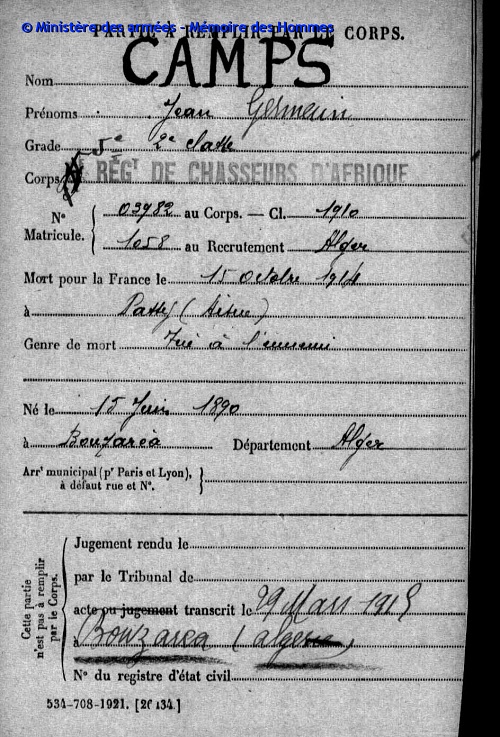 © Ministère des armées - Mémoire des Hommes
PARTIE À REMPLIR PAR LE CORPS.
CAMPS
Nom
Prénoms Jean Germain
Grade 2e classe
Corps 5e RÉGT DE CHASSEURS D'AFRIQUE
N° Matricule. 03982 au Corps. — Cl. 1910
1058 au Recrutement Alger
Mort pour la France le 15 octobre 1914
à (Aisne)
Genre de mort Tué à l'ennemi
Né le 15 Juin 1890
à Bouzaréa Département Alger
Arrt municipal (pr Paris et Lyon),
à défaut rue et N°.
Cette partie
n'est pas à remplir
par le Corps.
Jugement rendu le
par le Tribunal de
acte ou jugement transcrit le 29 Mars 1915
à Bouzarea (algérie)
N° du registre d'état civil
534-708-1921. [26134.]